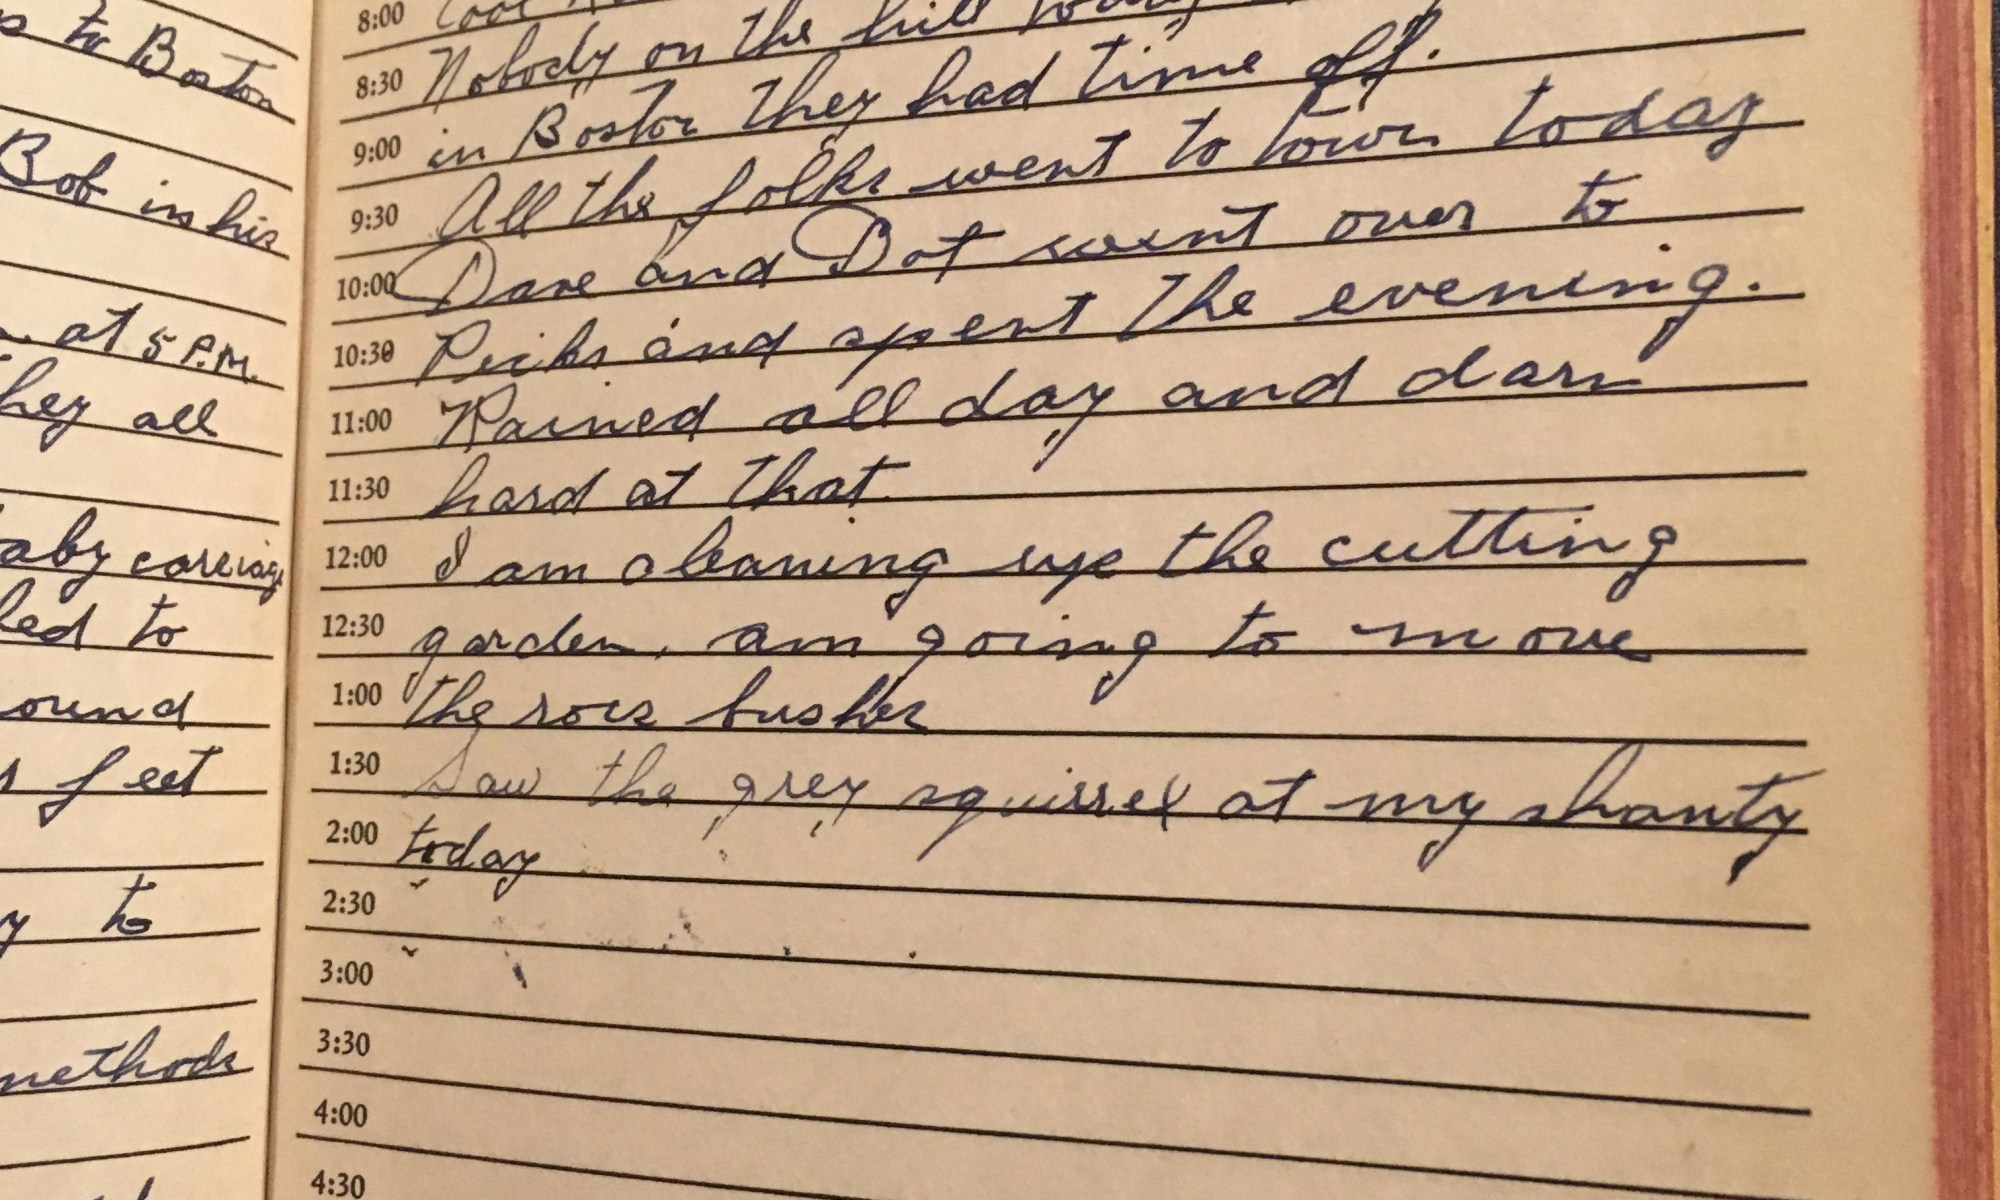 to Boston
Bob in his
at 5 P.M.
they all
baby carriage
to
ound
feet
to
methods
8:00
8:30 Nobody on the hill today
9:00 in Boston they had time off.
9:30 All the folks went to town today
10:00 Dave and Dot went over to
10:30 and spent the evening.
11:00 Rained all day and darn
11:30 hard at that
12:00 I am cleaning up the cutting
12:30 garden. am going to move
1:00 the rose bushes
1:30 Saw the grey squirrel at my shanty
2:00 today
2:30
3:00
3:30
4:00
4:30